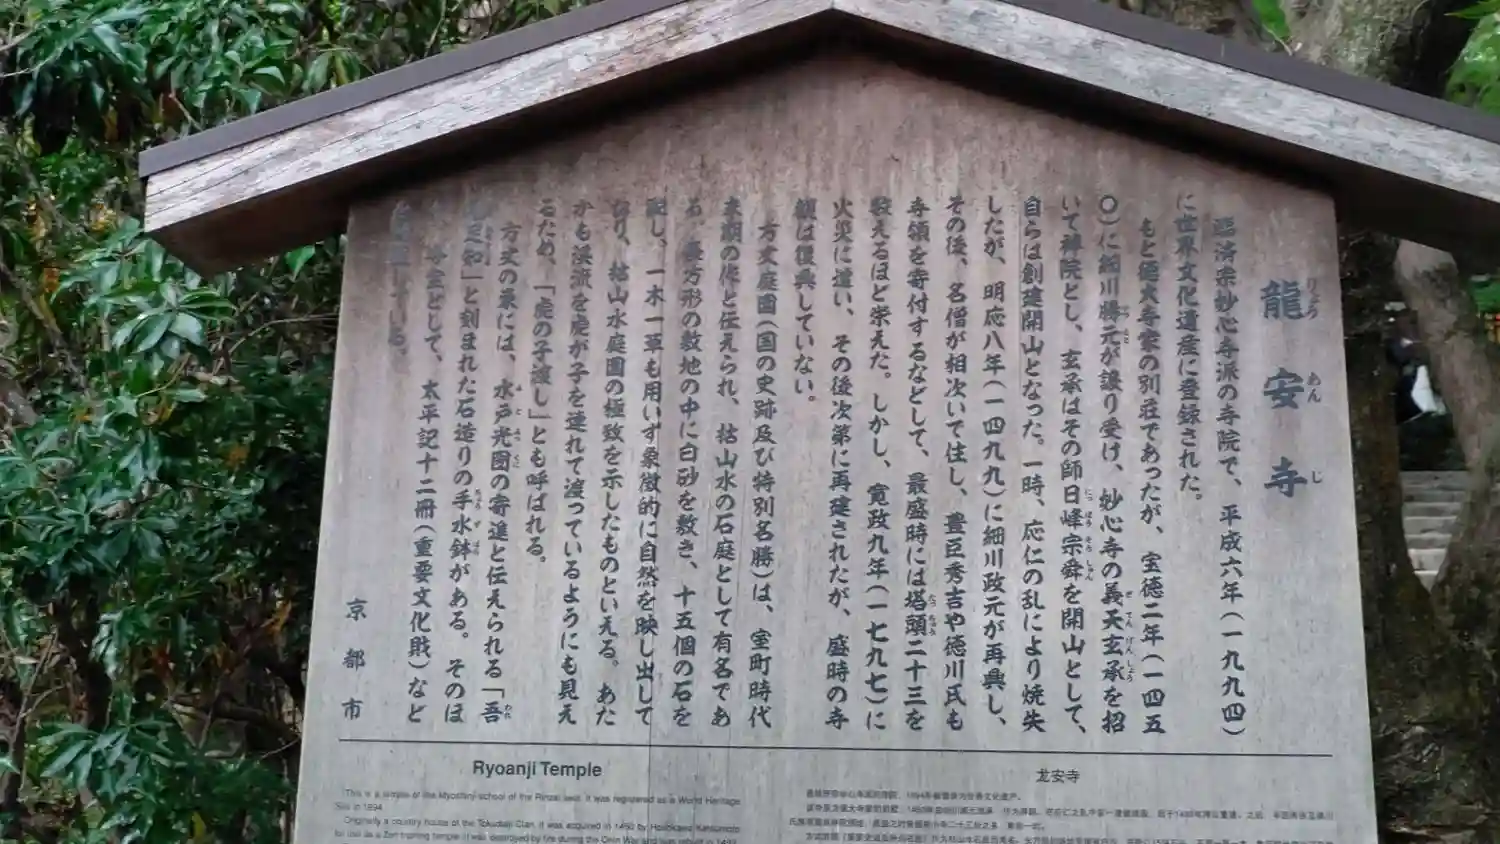 龍安寺
りょうあんじ
臨済宗妙心寺派の寺院で、平成六年(一九九四)
に世界文化遺産に登録された。
もと徳大寺家の別荘であったが、宝徳二年(一四五
〇)に細川勝元が譲り受け、妙心寺の義天玄承を招
いて禅院とし、玄承はその師日峰宗舜を開山として、
自らは創建開山となった。一時、応仁の乱により焼失
したが、明応八年(一四九九)に細川政元が再興し、
その後、名僧が相次いで住し、豊臣秀吉や徳川氏も
寺領を寄付するなどして、最盛時には塔頭二十三を
数えるほど栄えた。しかし、寛政九年(一七九七)に
火災に遭い、その後次第に再建されたが、盛時の寺
観は復興していない。
方丈庭園(国の史跡及び特別名勝)は、室町時代
末期の作と伝えられ、枯山水の石庭として有名であ
る。長方形の敷地の中に白砂を敷き、十五個の石を
配し、一木一草も用いず象徴的に自然を映し出して
おり、枯山水庭園の極致を示したものといえる。あた
かも渓流を虎が子を連れて渡っているようにも見え
るため、「虎の子渡し」とも呼ばれる。
方丈の東には、水戸光圀の寄進と伝えられる「吾
足知」と刻まれた石造りの手水鉢がある。そのほ
寺宝として、太平記十二冊(重要文化財)など
している。
京都市
Ryoanji Temple
This is a temple of the Myoshinji school of the Rinzai sect. It was registered as a World Heritage
Site in 1994.
Originally a country house of the Tokudaiji Clan, it was acquired in 1450 by Hosokawa Katsumoto
for use as a Zen training temple. It was destroyed by fire during the Onin War and was rebuilt in
龙安寺